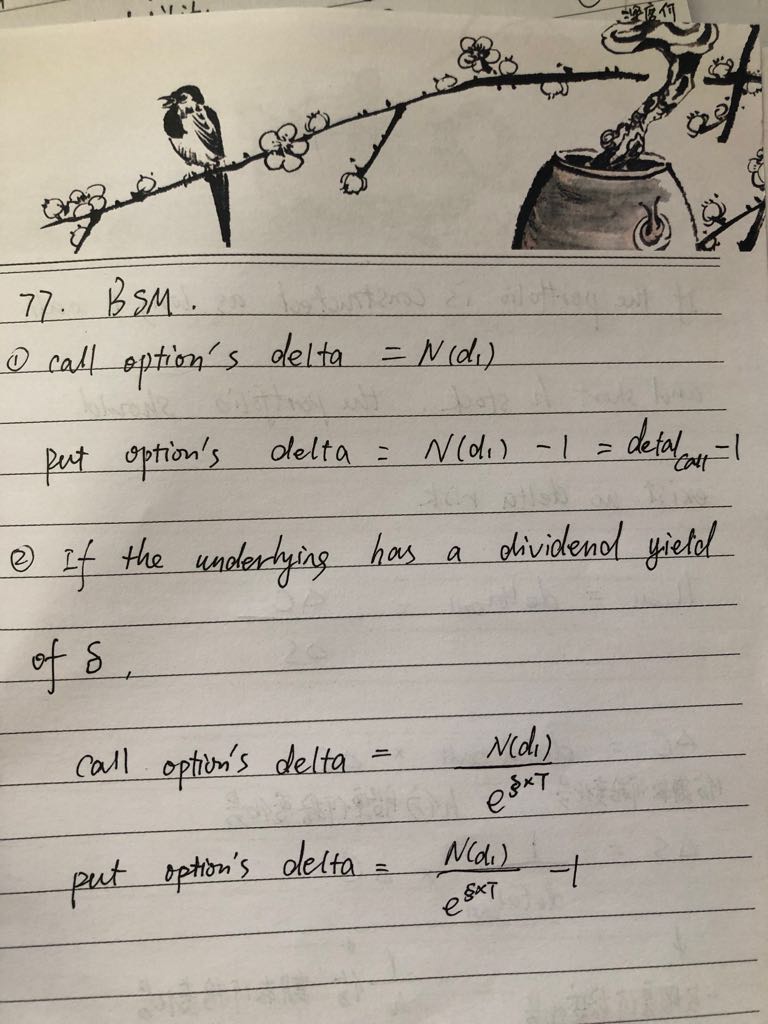 77. BSM.
① call option's delta = N(d₁)
put option's delta = N(d₁) - 1 = detal call - 1
② If the underlying has a dividend yield
of δ,
call option's delta = N(d₁) / e^(δ×T)
put option's delta = N(d₁) / e^(δ×T) - 1